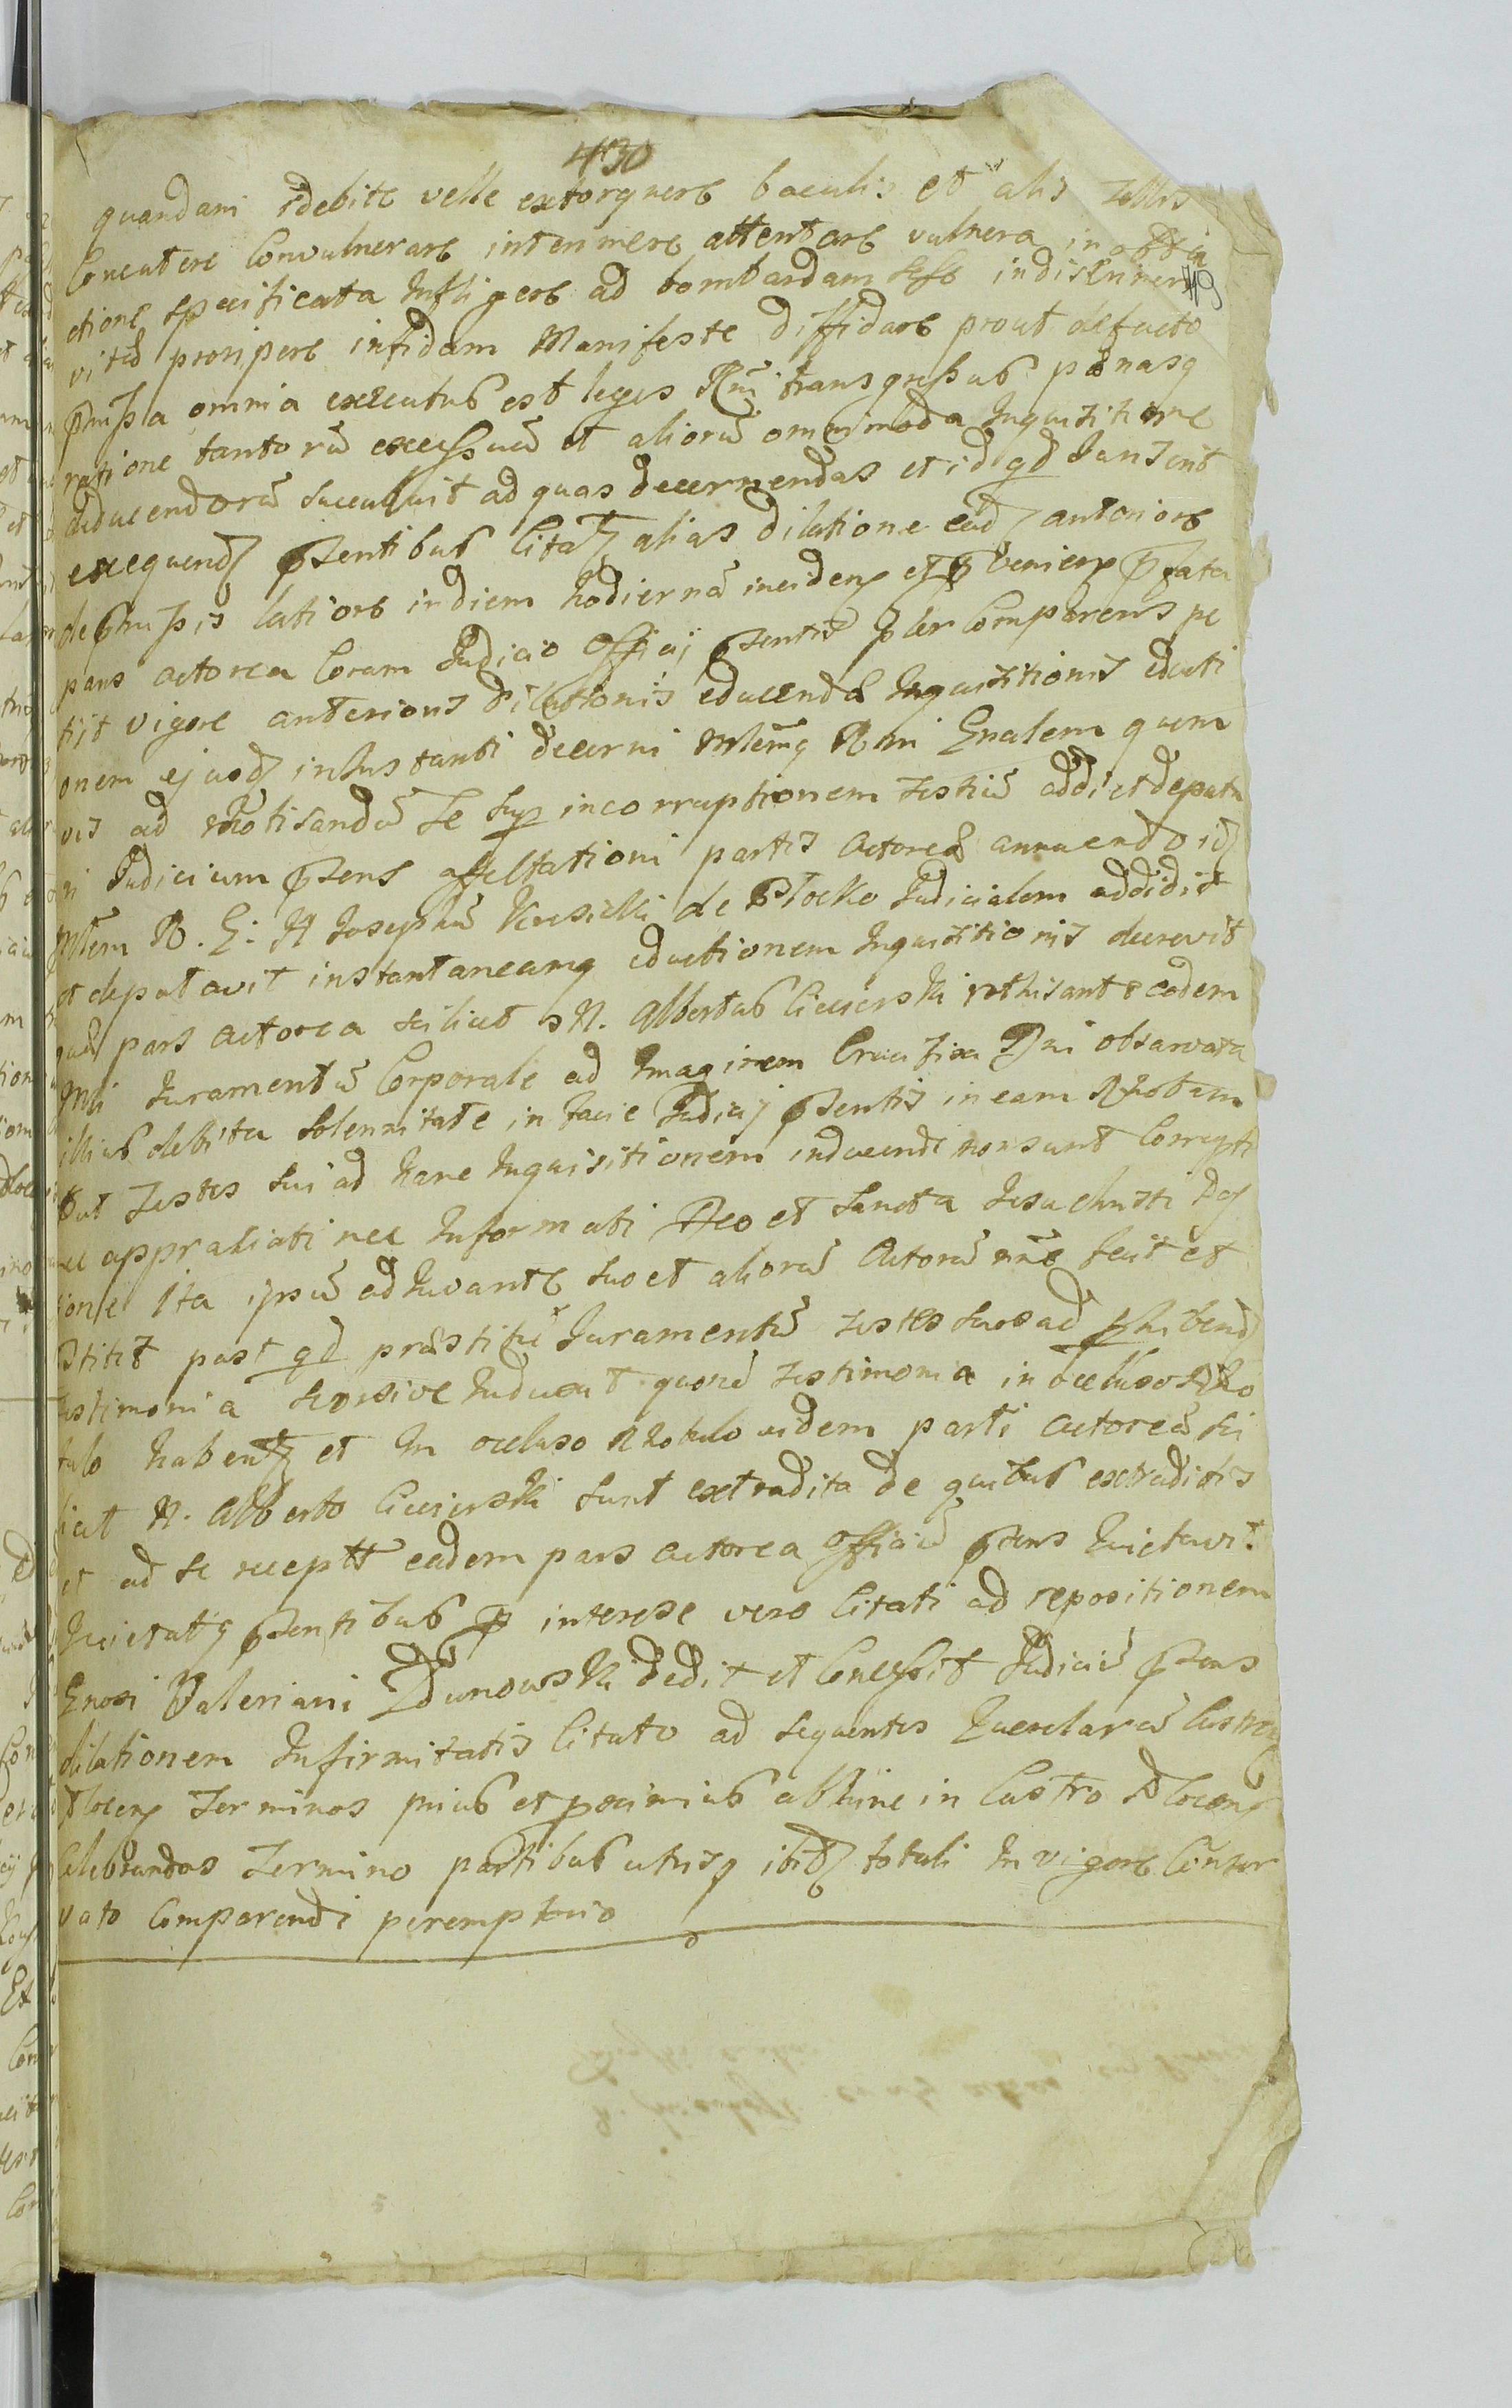 430
quandam idebite velle extorquere baculis et alis
Concutere Convulnerare intenmere attentare vulnera in
ctione specificata Infligere ad bombardam sese
49
prosipere infidam Manifeste diffidare prout defacto
pmissa omnia executus est leges Rni transgressus pænasq
ratione tantorū excessuū et aliorū omnimoda Inquisitione
deducendorū succubuit ad quas decernendas et id qd Jus
exequend psentibus Citat alias dilatione ead anteriore
de pmissis latiore indiem hodiernā inciden et pvenien pfata
pars actorea Coram Judicio Officij psentis pler Comparens pe
tijt vigore anterioris Dilationis educendæ Inquisitionis educti
onem ejusd instanti decerni Mlemq Rni Gnalem quem
vis ad Rhotisandū se sup incorruptionem testiū addi et deputa
ri Judicium psens affectationi partis Actoreæ annuendo id
Mlem R. G. N Josephū Krusicki de Plocko Judicialem addidit
et deputavit instantaneamq eductionem Inquisitionis decrevit
pars actorea scilicet N. Albertus Ciecierski rothisante eodem
Mli Juramentū Corporale ad Imaginem Crucifixi Dni observata
illius debita solennitate in facie Judicij psentis in eam Rhotam
Quod Testes sui ad hanc Inquisitionem inducendi non sunt Corrupti
nec appraetiati nec Informati Deo et Sancta Jesu Christi Pas
sione Ita ipsū adjuvante suo et aliorū Actorū nne fecit et
pstitit post qd præstitū Juramentū testes suos ad phibend
testimonia seorsive Induxit quorū testimonia in occluso Rho
tulo habent et In occluso Rhotulo eidem parti actoreæ sci
licet N. Alberto Ciecierski sunt extradita de quibus extraditis
et ad se recept eadem pars actorea Officiū psens Quietavit
Quietatq psentibus p interesse vero Citati ad repositionem
Gnosi Valeriani Dunowski dedit et Concessit Judiciū psens
dilationem Infirmitatis Citato ad sequentes Querelarū Castren
Plocen Terminos prius et proximius abhinc in Castro Plocen
Celebrandos Termino partibus utrisq ibid totali In vigore Conser
vato Comparendi peremptorio